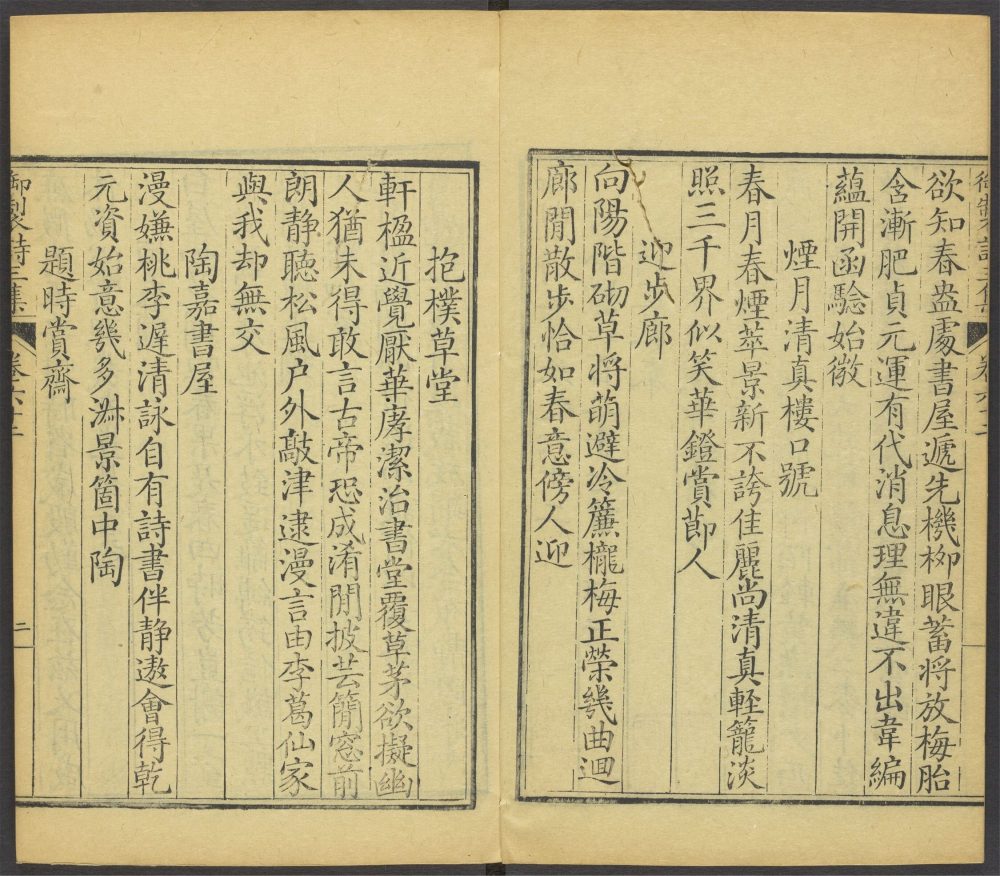 欲知春盎處書屋遞先機柳眼蓄將放梅胎
含漸肥貞元運有代消息理無違不出韋編
蘊開函驗始微
煙月清真樓口號
春月春煙萃景新不誇佳麗尚清真輕籠淡
照三千界似笑華鐙賞節人
迎步廊
向陽階砌草將萌避冷簾櫳梅正榮幾曲迴
廊閒散步恰如春意傍人迎
抱樸草堂
軒楹近覺厭華庨潔治書堂覆草茅欲擬幽
人猶未得敢言古帝恐成淆閒披芸簡窓前
朗靜聽松風户外敲津逮漫言由李葛仙家
與我却無交
陶嘉書屋
漫嫌桃李遲清詠自有詩書伴静遨會得乾
元資始意幾多淋景箇中陶
題時賞齋
御製詩三集
卷六十二
二